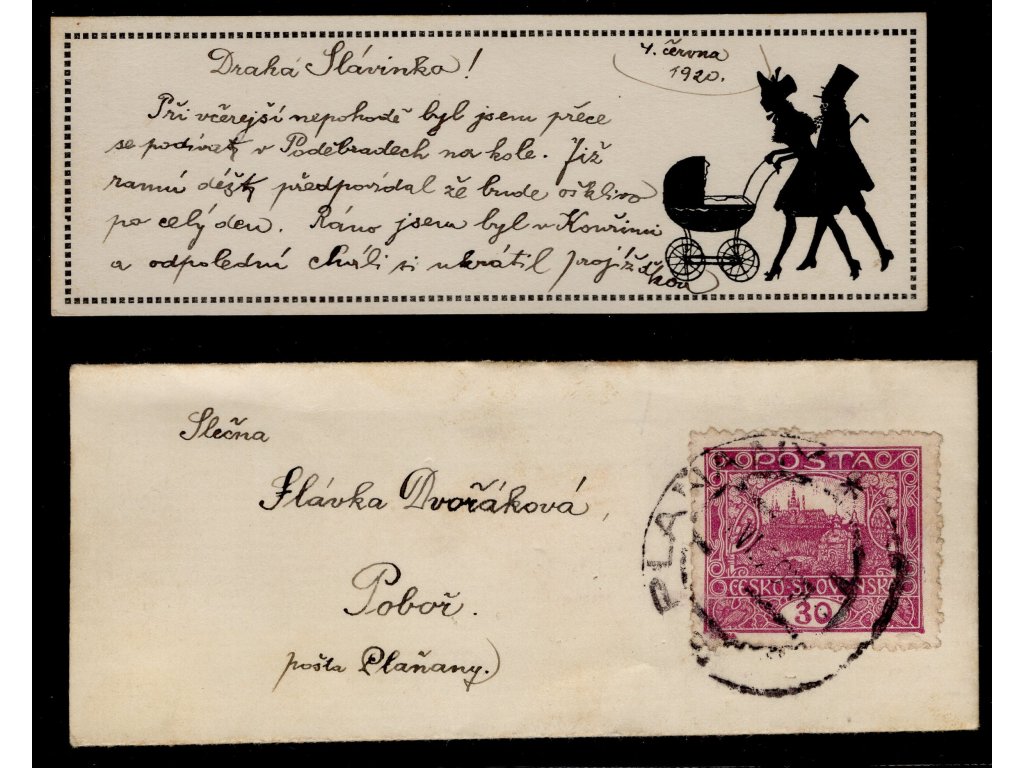 Drahá Slávinko!
4. června
1920.
Při včerejší nepohodě byl jsem přece
se podívat v Poděbradech na kole. Již
ranní déšť předpovídal že bude ošklivo
po celý den. Ráno jsem byl v Kouřimi
a odpolední chvíli si ukrátil projížďkou
Slečna
Slávka Dvořáková,
Poboř.
pošta Plaňany.)
POŠTA
ČESKO-SLOVENSKÁ
30
PLAŇANY